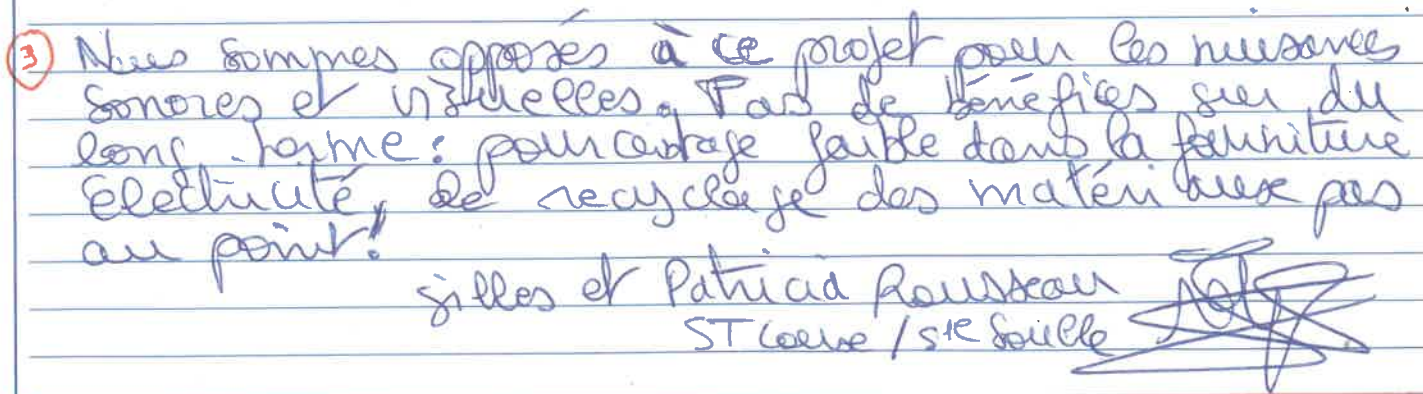 3 Nous sommes opposés à ce projet pour les nuisances
sonores et visuelles. Pas de bénéfices sur du
long terme : pourcentage faible dans la fourniture
électricité, le recyclage des matériaux pas
au point !
Gilles et Patricia Rousseau
ST Coeux / Ste Soulle